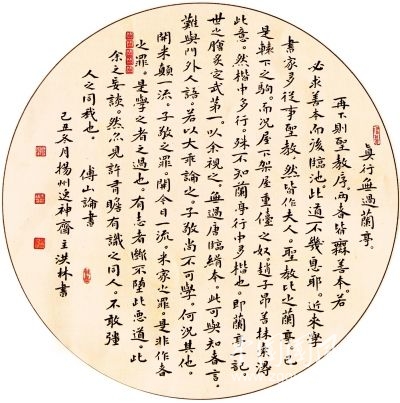 真行無過蘭亭。
再下則聖教序。两者皆無善本。若
必求善本而後臨池。此道不幾息耶。近来學
書家多從事聖教。然皆作夫人。聖教比之蘭亭已
是轅下之駒。而况屋下架屋重儓之奴。趙子昂善抹索得
此意。然楷中多行。殊不知蘭亭行中多楷也。即蘭亭一記。
世之膾炙定武第一。以余視之。無過唐臨絹本。此可與知者言。
難與門外人語。若以大乖論之。子敬尚不可學。何況其他。
開米顛一流。子敬之罪。開今日一流。米家之罪。是非作者
之罪。是學之者之過也。有志者斷不墮此惡道。此
余之妄談。然亦見許書瞻有識之同人。不敢強
人之同我也。 傅山論書
己丑冬月揚州逸神齋主洪林書